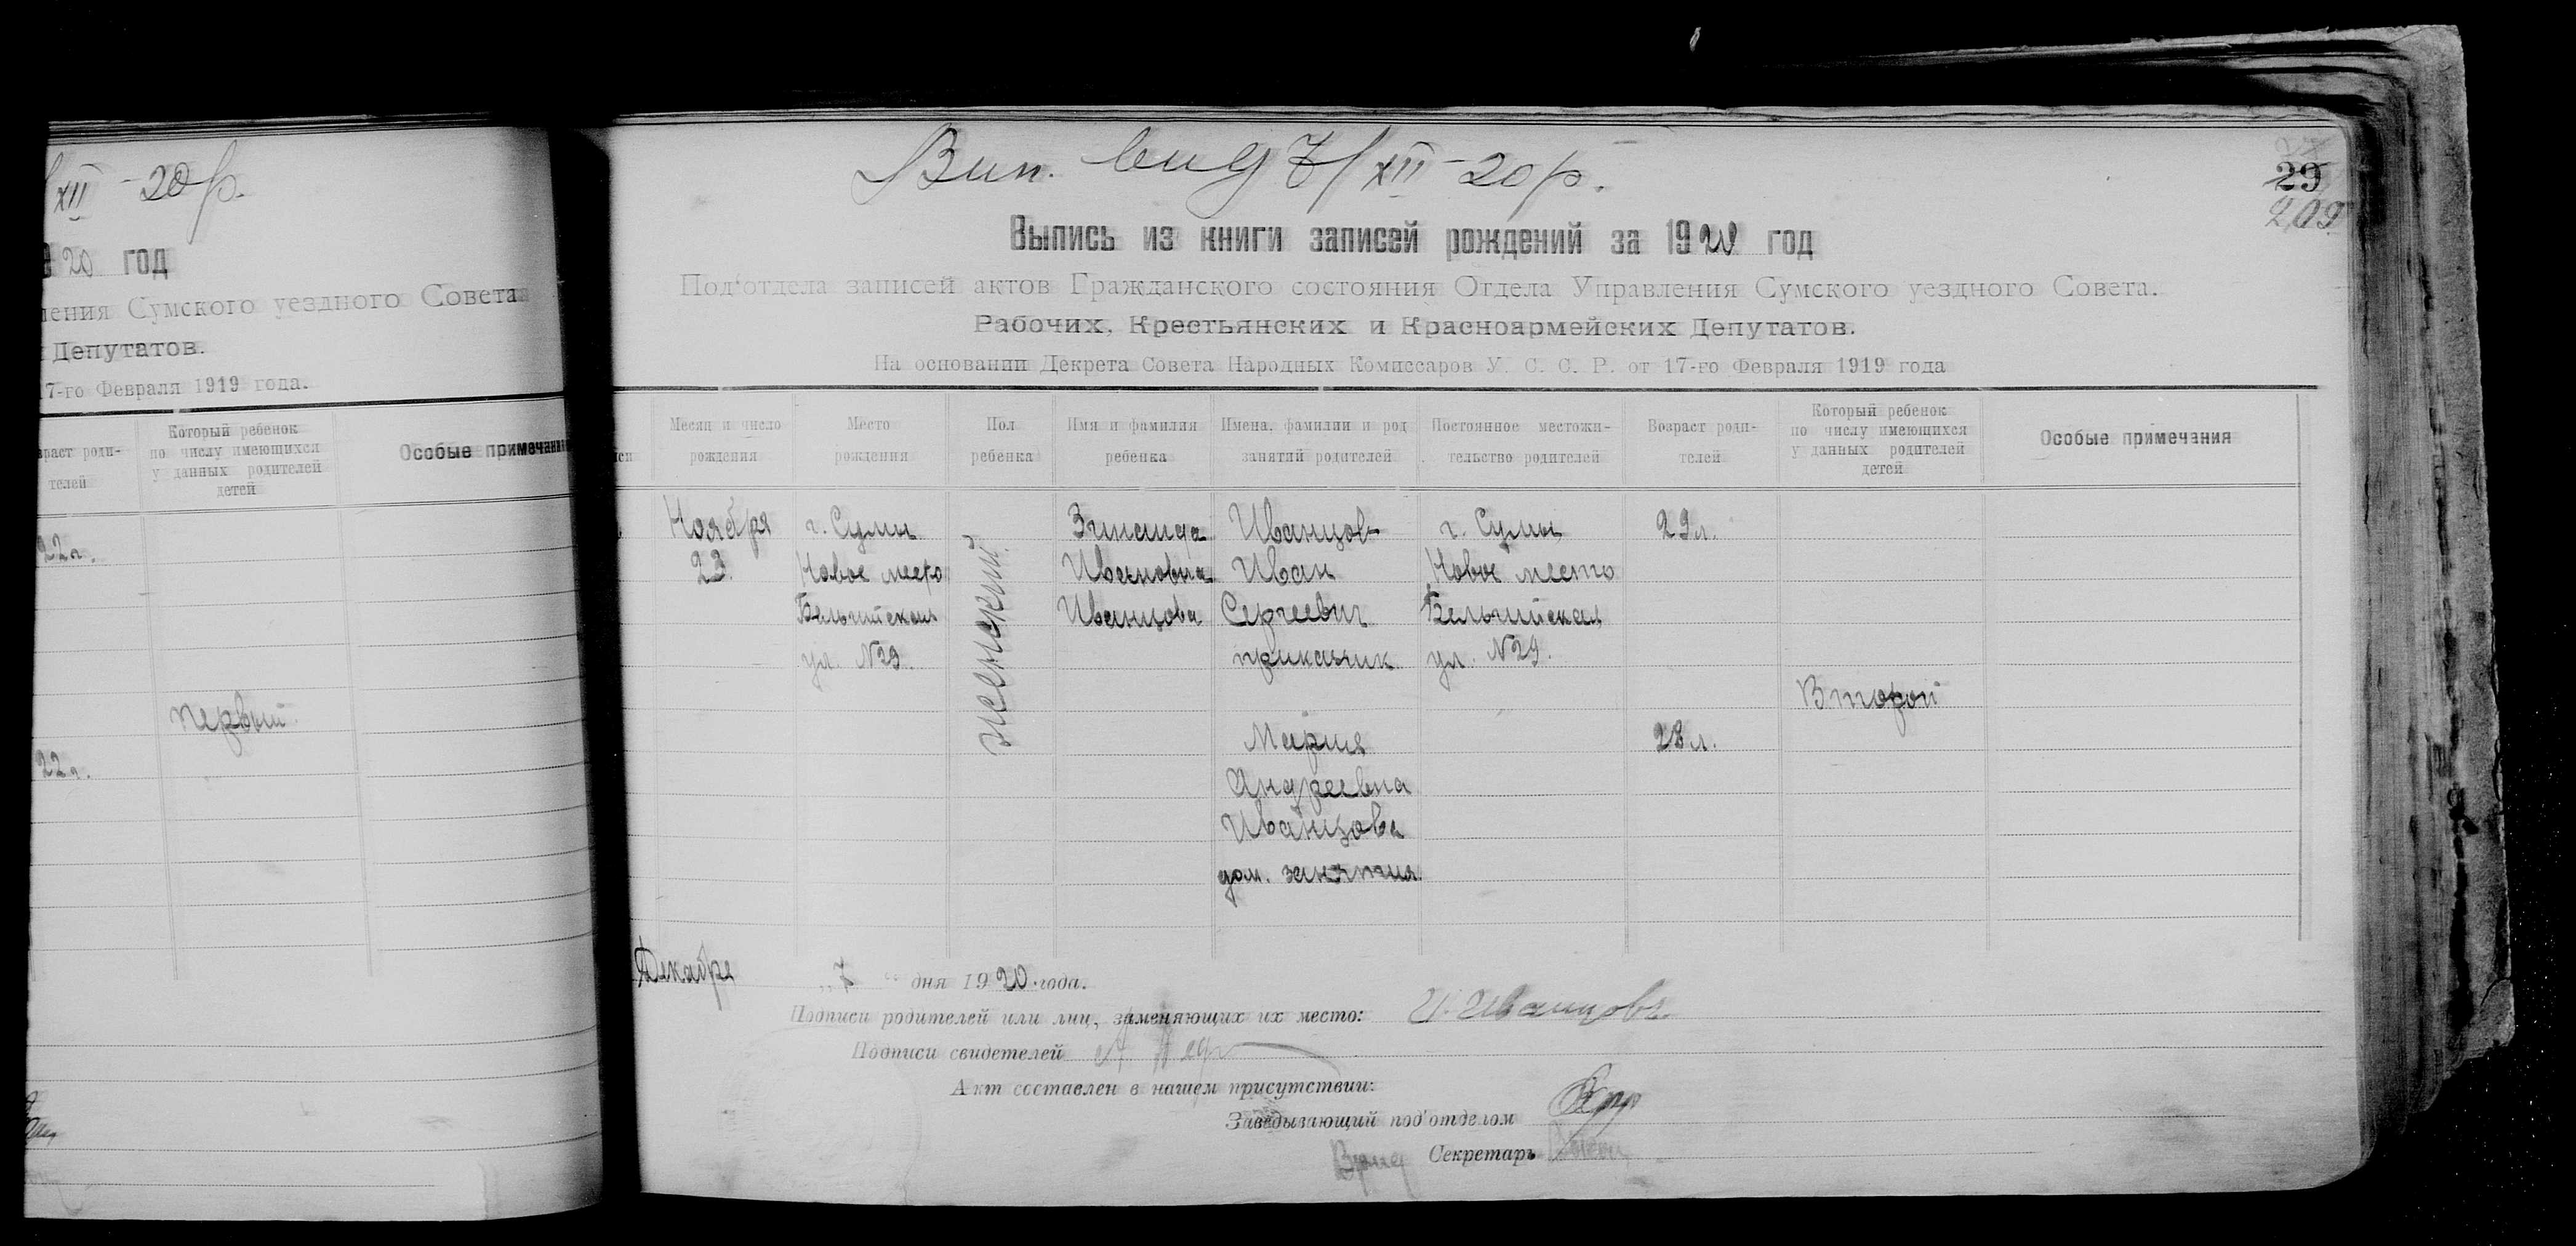 XII - 20 р.
20 год
ления Сумского уездного Совета
Депутатов.
17-го Февраля 1919 года.
раст роди-
телей
Который ребенок
по числу имеющихся
у данных родителей
детей
Особые примечания
22 л.
первый
22 л.
Вип. вид 7/XII - 20 р.
29
209
Выпись из книги записей рождений за 1920 год
Под'отдела записей актов Гражданского состояния Отдела Управления Сумского уездного Совета.
Рабочих, Крестьянских и Красноармейских Депутатов.
На основании Декрета Совета Народных Комиссаров У. С. С. Р. от 17-го Февраля 1919 года
Месяц и число
рождения
Место
рождения
Пол
ребенка
Имя и фамилия
ребенка
Имена, фамилии и род
занятий родителей
Постоянное местожи-
тельство родителей
Возраст роди-
телей
Который ребенок
по числу имеющихся
у данных родителей
детей
Особые примечания
Ноября
23
г. Сумы
Новое место
Бельгийская
ул. N29.
женский
Зинаида
Ивановна
Иванцова
Иванцов
Иван
Сергеевич
приказчик
Мария
Андреевна
Иванцова
дом. занятия
г. Сумы
Новое место
Бельгийская
ул. N29.
29 л.
28 л.
Второй
Декабря „7“ дня 1920 года.
Подписи родителей или лиц, заменяющих их место: И. Иванцовъ
Подписи свидетелей
Акт составлен в нашем присутствии:
Заведывающий под'отделом
Врид Секретарь